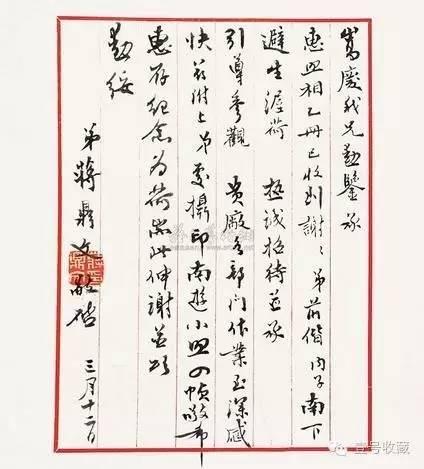 嵩慶我兄勛鑒承
惠照相乙冊已收到謝謝弟前偕內子南下
避生渥荷 熱誠招待並承
引導參觀 貴廠各部門作業至深感
快茲附上弟處攝印南遊小照四幀敬希
惠存紀念為荷耑此伸謝並頌
勛綏
弟蔣鼎文敬啓
三月十二日
壹号收藏